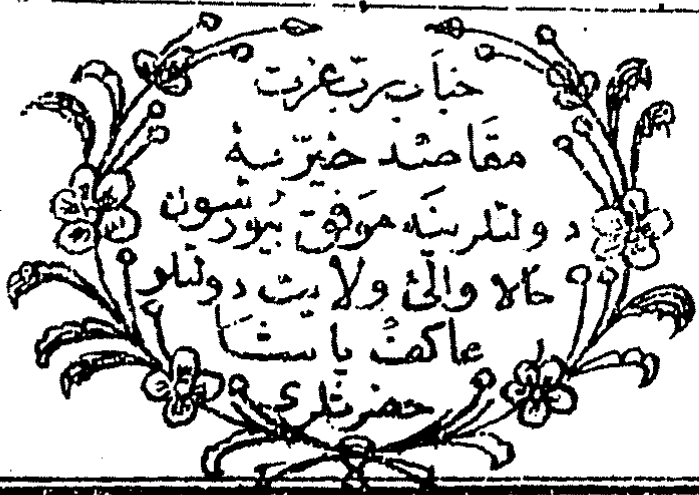 جناب رب عزت
مقاصد خیریه
دولتلرینه موفق بیورسون
حالا والئ ولایت دولتلو
عاکف پاشا
حضرتلری